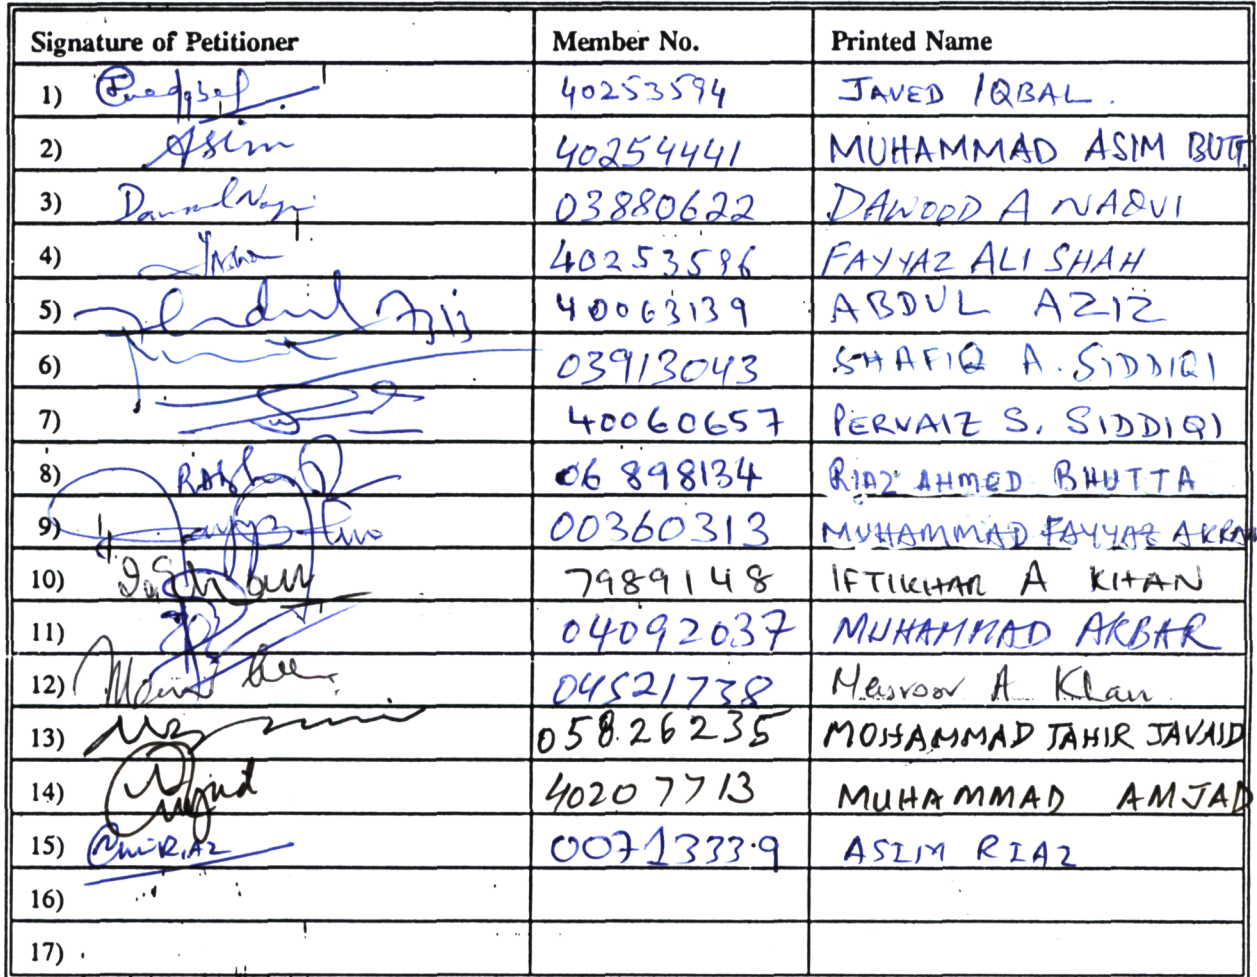 Signature of Petitioner Member No. Printed Name
1) 40253594 JAVED IQBAL.
2) Asim 40254441 MUHAMMAD ASIM BUTT
3) 03880622 DAWOOD A NAQVI
4) 40253596 FAYYAZ ALI SHAH
5) Abdul Aziz 40063139 ABDUL AZIZ
6) 03913043 SHAFIQ A. SIDDIQI
7) 40060657 PERVAIZ S. SIDDIQI
8) 06 898134 RIAZ AHMED BHUTTA
9) 00360313 MUHAMMAD FAYYAZ AKRAM
10) 7989148 IFTIKHAR A KHAN
11) 04092037 MUHAMMAD AKBAR
12) 04521738 Masroor A Khan
13) 05826235 MOHAMMAD TAHIR JAVAID
14) Amjad 40207713 MUHAMMAD AMJAD
15) 00713339 ASIM RIAZ
16)
17)